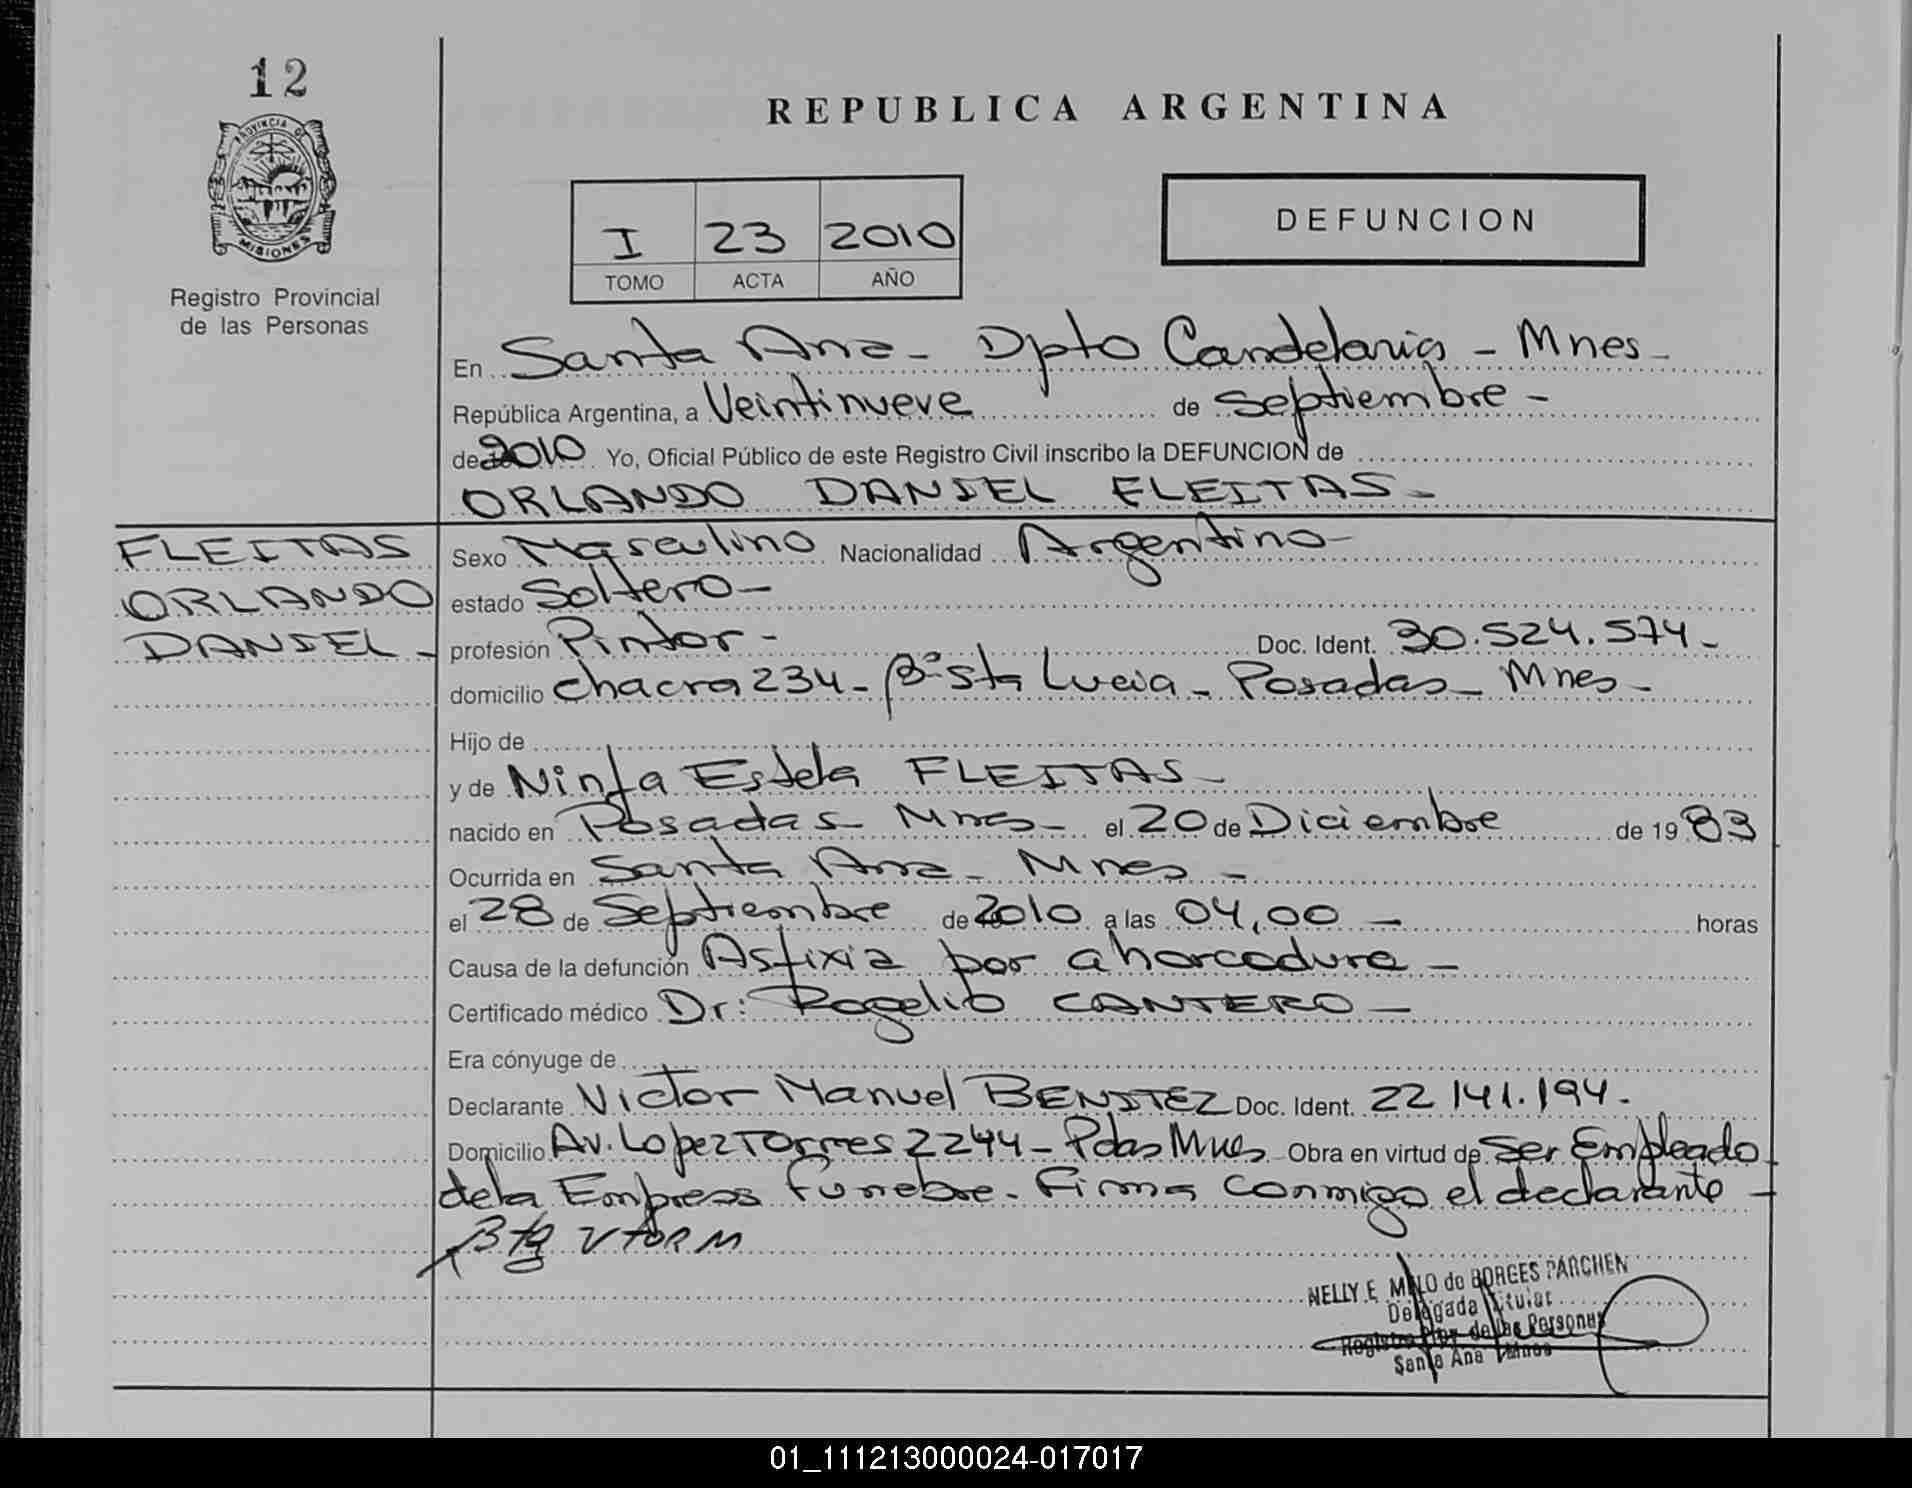 12
PROVINCIA DE
MISIONES
Registro Provincial
de las Personas
REPUBLICA ARGENTINA
I 23 2010
TOMO ACTA AÑO
DEFUNCION
En Santa Ana - Dpto Candelaria - Mnes -
República Argentina, a Veintinueve de Septiembre -
de 2010 Yo, Oficial Público de este Registro Civil inscribo la DEFUNCION de
ORLANDO DANIEL FLEITAS -
FLEITAS
ORLANDO
DANIEL -
Sexo Masculino Nacionalidad Argentino -
estado Soltero -
profesión Pintor - Doc. Ident. 30.524.574 -
domicilio chacra 234 - Bº Sta Lucia - Posadas - Mnes -
Hijo de
y de Ninfa Estela FLEITAS -
nacido en Posadas - Mnes - el 20 de Diciembre de 1983
Ocurrida en Santa Ana - Mnes -
el 28 de Septiembre de 2010 a las 04,00 - horas
Causa de la defunción Asfixia por ahorcadura -
Certificado médico Dr: Rogelio CANTERO -
Era cónyuge de
Declarante Victor Manuel BENITEZ Doc. Ident. 22 141.194 -
Domicilio Av. Lopez Torres 2244 - Pdas Mnes Obra en virtud de ser Empleado
de la Empresa Funebre - Firma conmigo el declarante -
NELLY E. MELO de BORGES PARCHEN
Delegada Titular
Registro Prov. de las Personas
Santa Ana Mnes
01_111213000024-017017